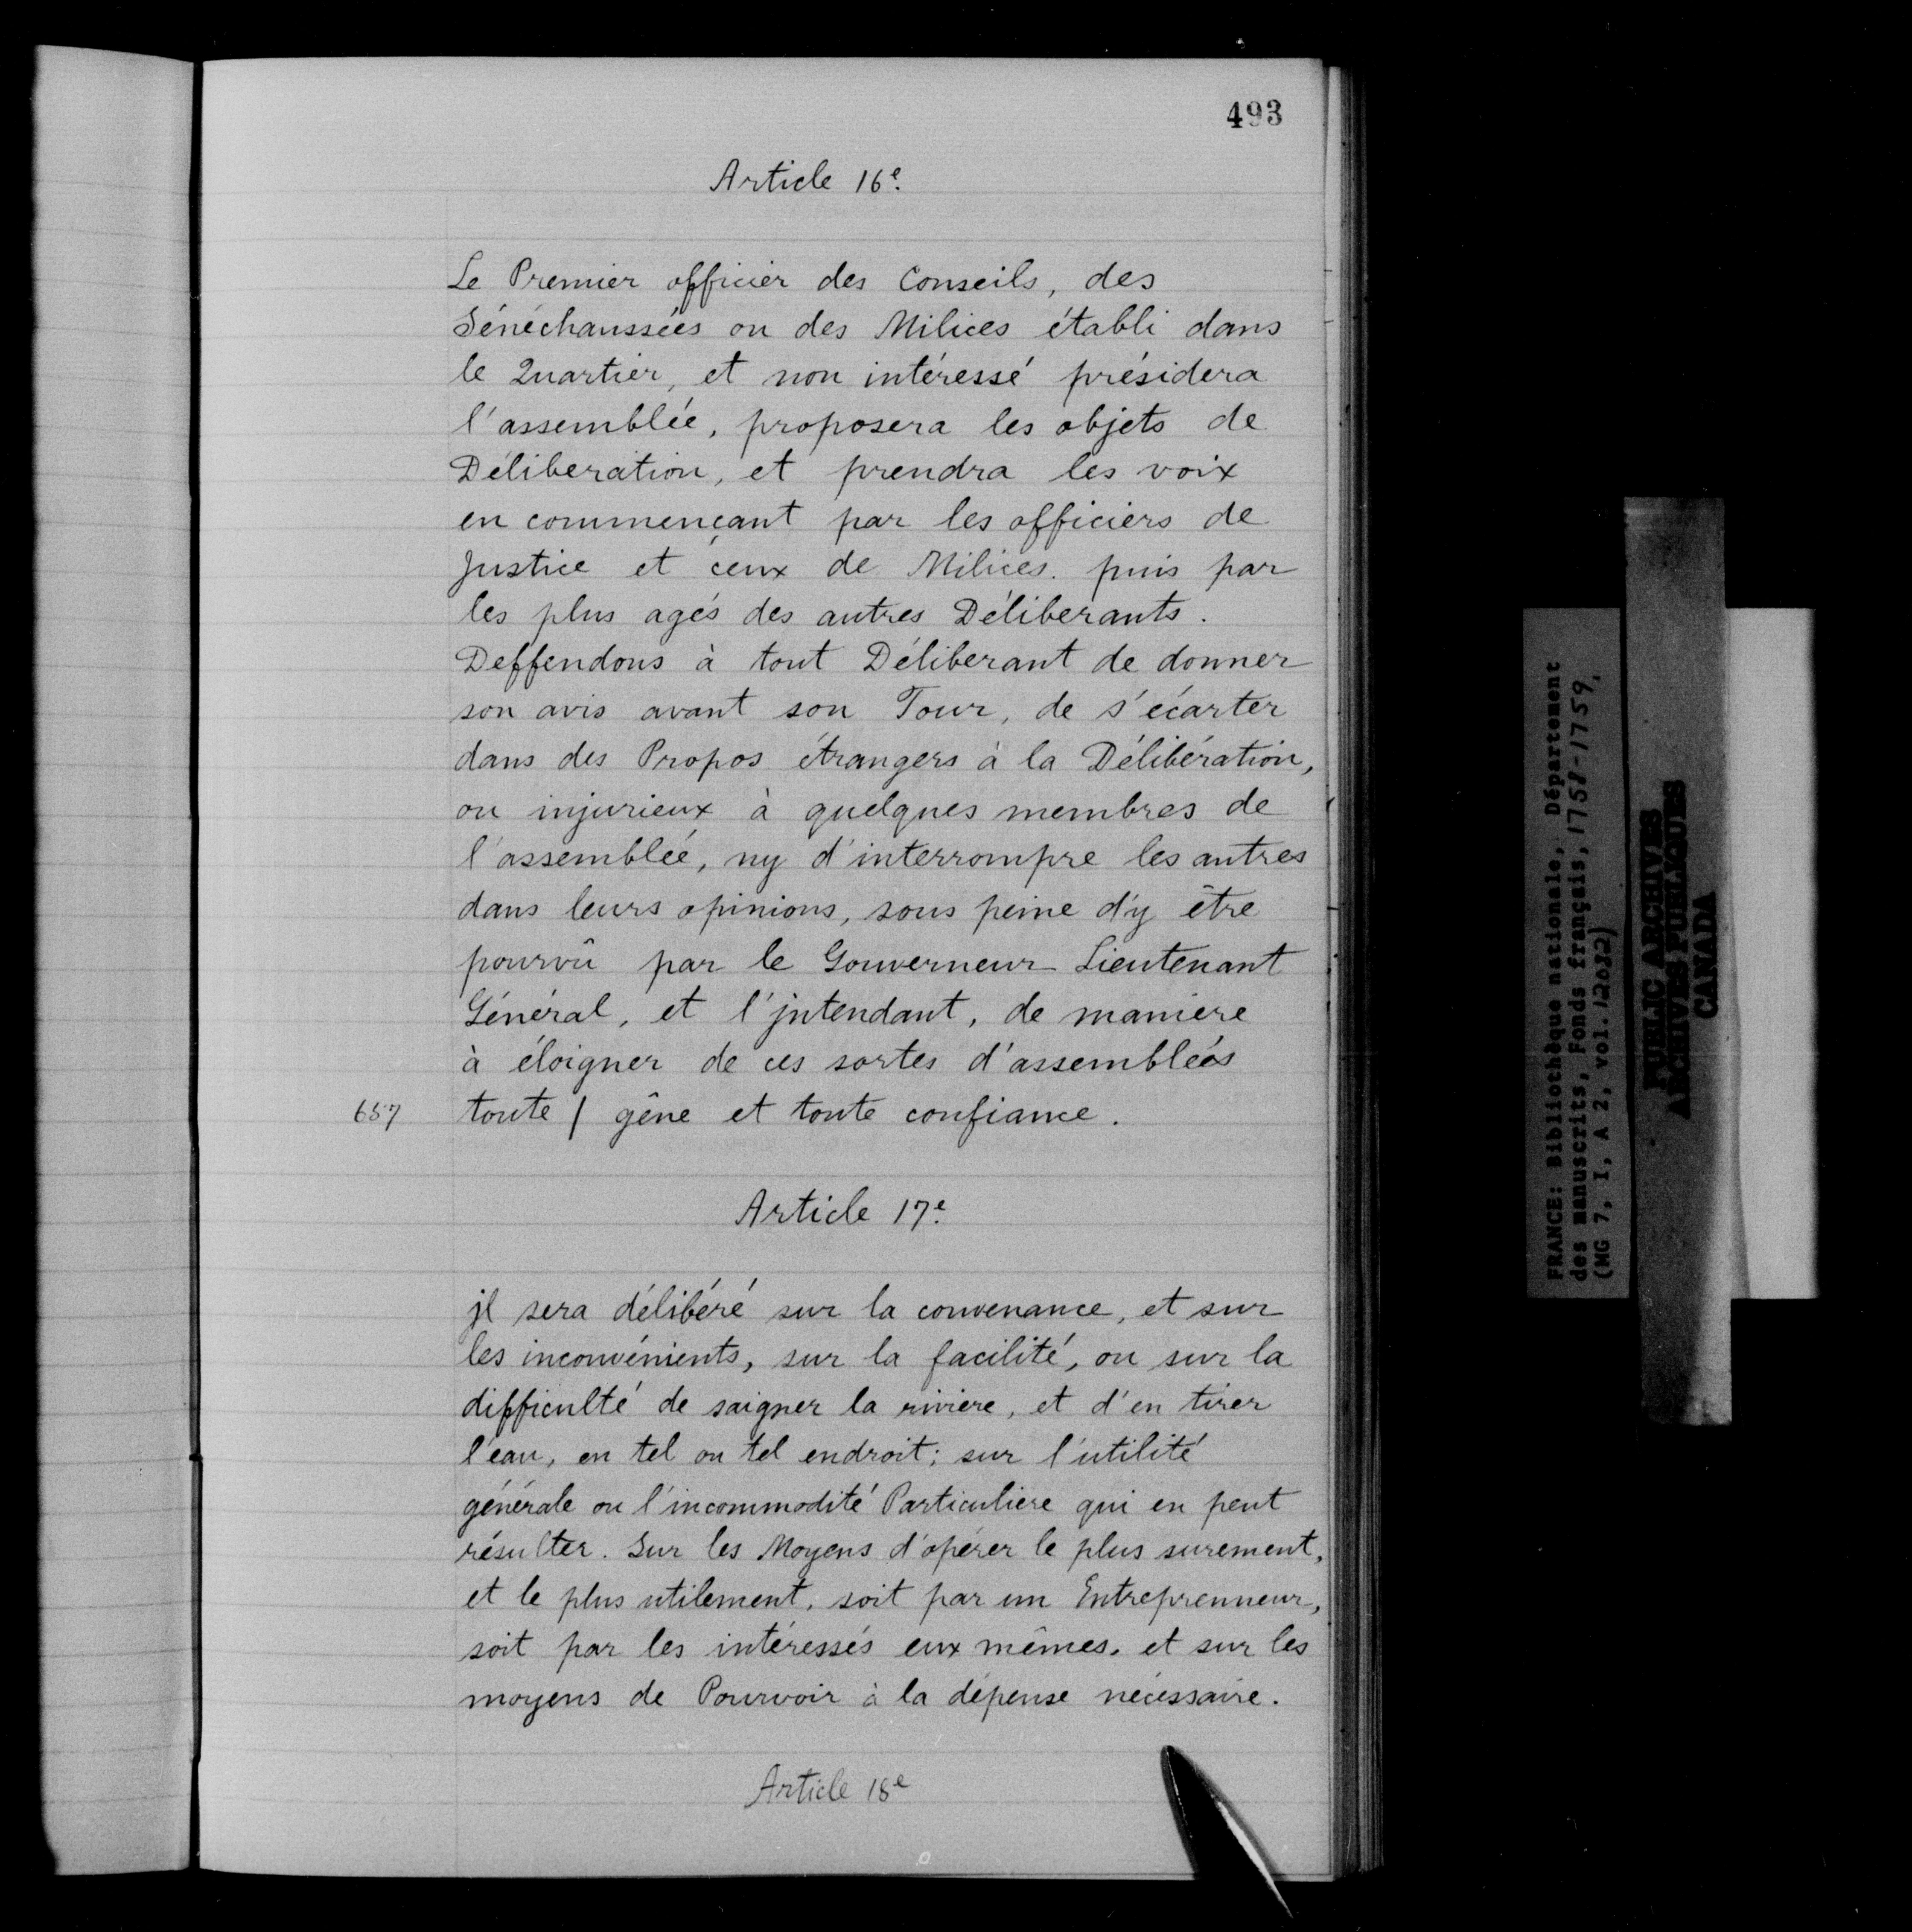 493
Article 16e.
Le Premier officier des Conseils, des
Sénéchaussées ou des Milices établi dans
le Quartier, et non intéressé présidera
l'assemblée, proposera les objets de
Déliberation, et prendra les voix
en commençant par les officiers de
Justice et ceux de Milices. puis par
les plus agés des autres Déliberants.
Deffendons à tout Déliberant de donner
son avis avant son Tour, de s'écarter
dans des Propos étrangers à la Délibération,
ou injurieux à quelques membres de
l'assemblée, ny d'interrompre les autres
dans leurs opinions, sous peine d'y être
pourvû par le Gouverneur Lieutenant
Général, et l'jntendant, de maniere
à éloigner de ces sortes d'assemblées
657 toute / gêne et toute confiance.
Article 17e.
jl sera délibéré sur la convenance, et sur
les inconvénients, sur la facilité, ou sur la
difficulté de saigner la riviere, et d'en tirer
l'eau, en tel ou tel endroit; sur l'utilité
générale ou l'incommodité Particuliere qui en peut
résulter. Sur les Moyens d'opérer le plus surement,
et le plus utilement, soit par un Entreprenneur,
soit par les intéressés eux mêmes, et sur les
moyens de Pourvoir à la dépense nécessaire.
Article 18e
FRANCE: Bibliothèque nationale, Département
des manuscrits, Fonds français, 1758-1759,
(MG 7, I, A 2, vol. 12082)
PUBLIC ARCHIVES
ARCHIVES PUBLIQUES
CANADA